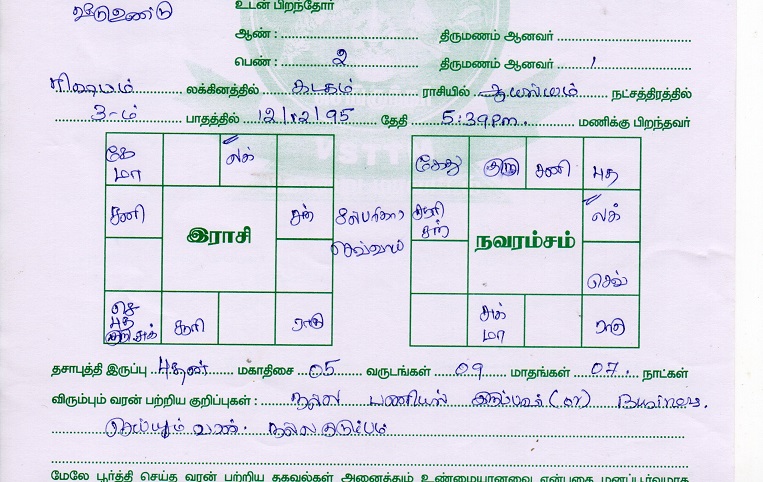 உடன் பிறந்தோர்
ஆண் : .................... திருமணம் ஆனவர் ....................
பெண் : ........ 2 ........ திருமணம் ஆனவர் ........ 1 ........
ரிஷபம் லக்கினத்தில் கடகம் ராசியில் ஆயில்யம் நட்சத்திரத்தில்
3-ம் பாதத்தில் 12/12/95 தேதி 5:39 P.m. மணிக்கு பிறந்தவர்
கே லக்
மா
சனி சந்
இராசி
செ
புத
குரு சுக் சூரி ராகு
செவ்வாய்
கேது குரு சனி புத
சூரி லக்
சந்
நவரம்சம்
செவ்
சுக்
மா ராகு
தசாபுத்தி இருப்பு புதன் மகாதிசை 05 வருடங்கள் 09 மாதங்கள் 07 நாட்கள்
விரும்பும் வரன் பற்றிய குறிப்புகள் : நல்ல பணியில் இருப்பவர் (or) Business
செய்யும் வரன். நல்ல குடும்பம்
மேலே பூர்த்தி செய்த வரன் பற்றிய தகவல்கள் அனைத்தும் உண்மையானவை என்பதை மனப்பூர்வமாக